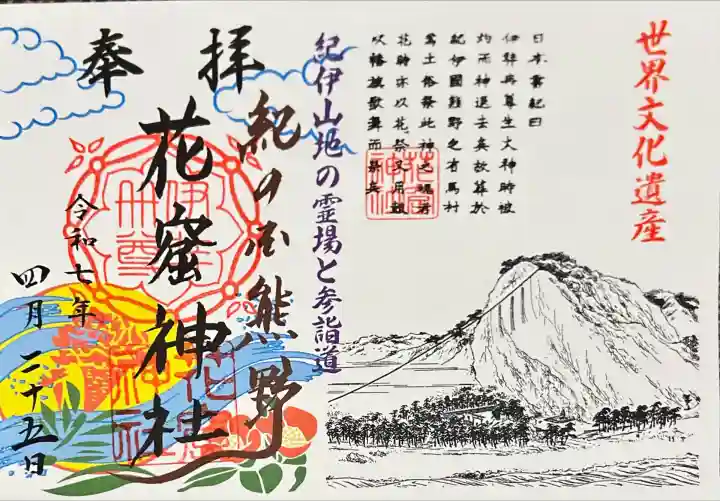 世界文化遺産
日本書紀曰
伊弉冉尊生火神時被
灼而神退去矣故葬於
紀伊國熊野之有馬村
焉土俗祭此神之魂者
花時亦以花祭又用鼓
吹幡旗歌舞而祭矣
花窟神社
紀伊山地の霊場と参詣道
奉拝
紀の国熊野
花窟神社
伊弉冉尊
花窟神社
令和七年
四月二十五日